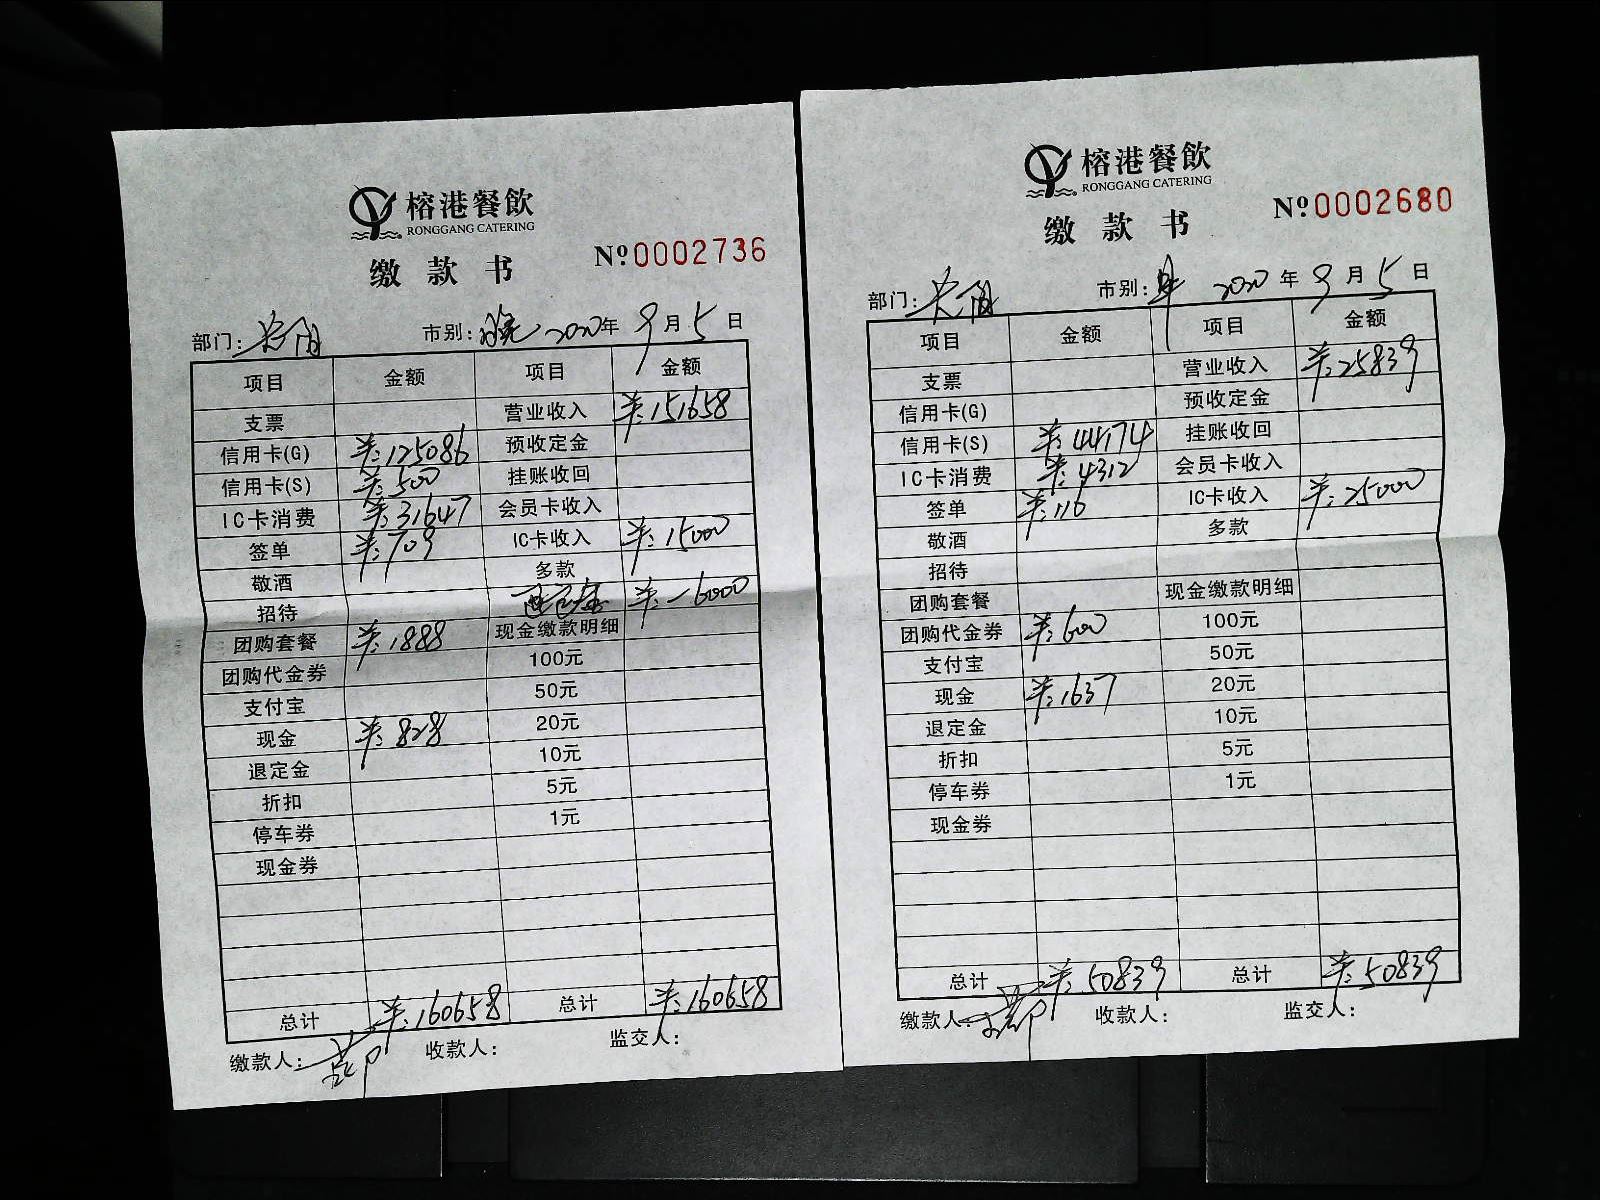 榕港餐飲
RONGGANG CATERING
缴款书
№0002736
部门: 市别: 晚 2020年9月5日
项目 金额 项目 金额
支票 营业收入 ¥:151658
信用卡(G) ¥:125086 预收定金
信用卡(S) ¥:500 挂账收回
IC卡消费 ¥:31647 会员卡收入
签单 ¥:709 IC卡收入 ¥:15000
敬酒 多款
招待 退定金 ¥:-6000
团购套餐 ¥:1888 现金缴款明细
团购代金券 100元
支付宝 50元
现金 ¥:828 20元
退定金 10元
折扣 5元
停车券 1元
现金券
总计 ¥:160658 总计 ¥:160658
缴款人: 收款人: 监交人:
榕港餐飲
RONGGANG CATERING
缴款书
№0002680
部门: 市别: 早 2020年9月5日
项目 金额 项目 金额
支票 营业收入 ¥:25839
信用卡(G) 预收定金
信用卡(S) ¥:44174 挂账收回
IC卡消费 ¥:4312 会员卡收入
签单 ¥:116 IC卡收入 ¥:25000
敬酒 多款
招待
团购套餐 现金缴款明细
团购代金券 ¥:600 100元
支付宝 50元
现金 ¥:1637 20元
退定金 10元
折扣 5元
停车券 1元
现金券
总计 ¥:50839 总计 ¥:50839
缴款人: 收款人: 监交人: